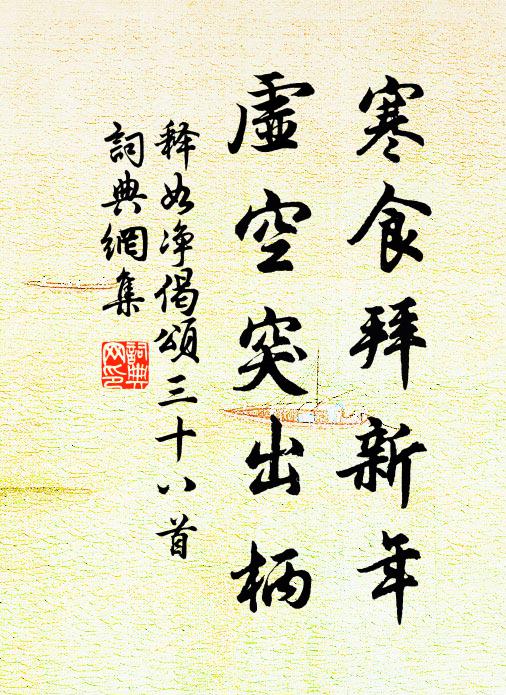 寒食拜新年
虛空突出柄
释如净偈頌三十八首
詞典網集
詞典
网印